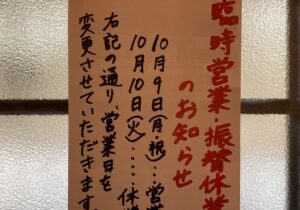 臨時営業・振替休業
のお知らせ
10月9日(月・祝)…営業
10月10日(火)‥‥休
右記の通り、営業日を
変更させていただきます。